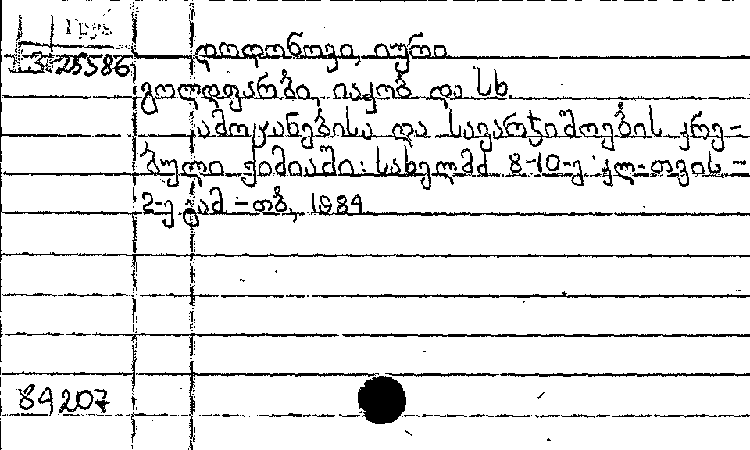 Груз
3 25586
დოდონოვი, იური
გოლდფარბი, იაკობ და სხ.
ამოცანებისა და სავარჯიშოების კრე-
ბული ქიმიაში: სახელმძ 8-10-ე კლ-თვის -
2-ე გამ - თბ, 1984
84207